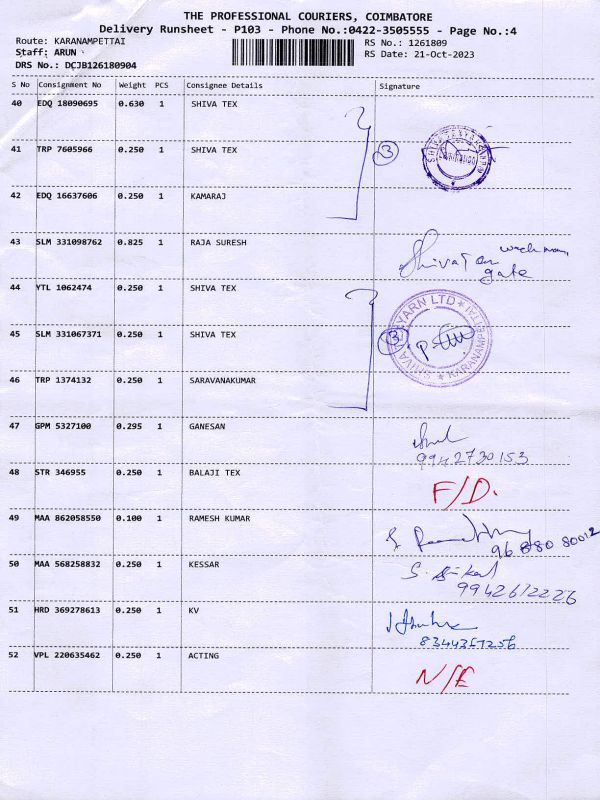 THE PROFESSIONAL COURIERS, COIMBATORE
Delivery Runsheet - P103 - Phone No.:0422-3505555 - Page No.:4
Route: KARANAMPETTAI RS No.: 1261809
Staff: ARUN RS Date: 21-Oct-2023
DRS No.: DCJB126180904
S No Consignment No Weight PCS Consignee Details Signature
40 EDQ 18090695 0.630 1 SHIVA TEX
41 TRP 7605966 0.250 1 SHIVA TEX 3
42 EDQ 16637606 0.250 1 KAMARAJ
43 SLM 331098762 0.825 1 RAJA SURESH Shiva Tex watch man
gate
44 YTL 1062474 0.250 1 SHIVA TEX
45 SLM 331067371 0.250 1 SHIVA TEX 3 YARN LTD KARANAMPETTAI
46 TRP 1374132 0.250 1 SARAVANAKUMAR
47 GPM 5327100 0.295 1 GANESAN
9942730153
48 STR 346955 0.250 1 BALAJI TEX F/D.
49 MAA 862058550 0.100 1 RAMESH KUMAR
96 880 80012
50 MAA 568258832 0.250 1 KESSAR
9942612226
51 HRD 369278613 0.250 1 KV
8344357256
52 VPL 220635462 0.250 1 ACTING N/E